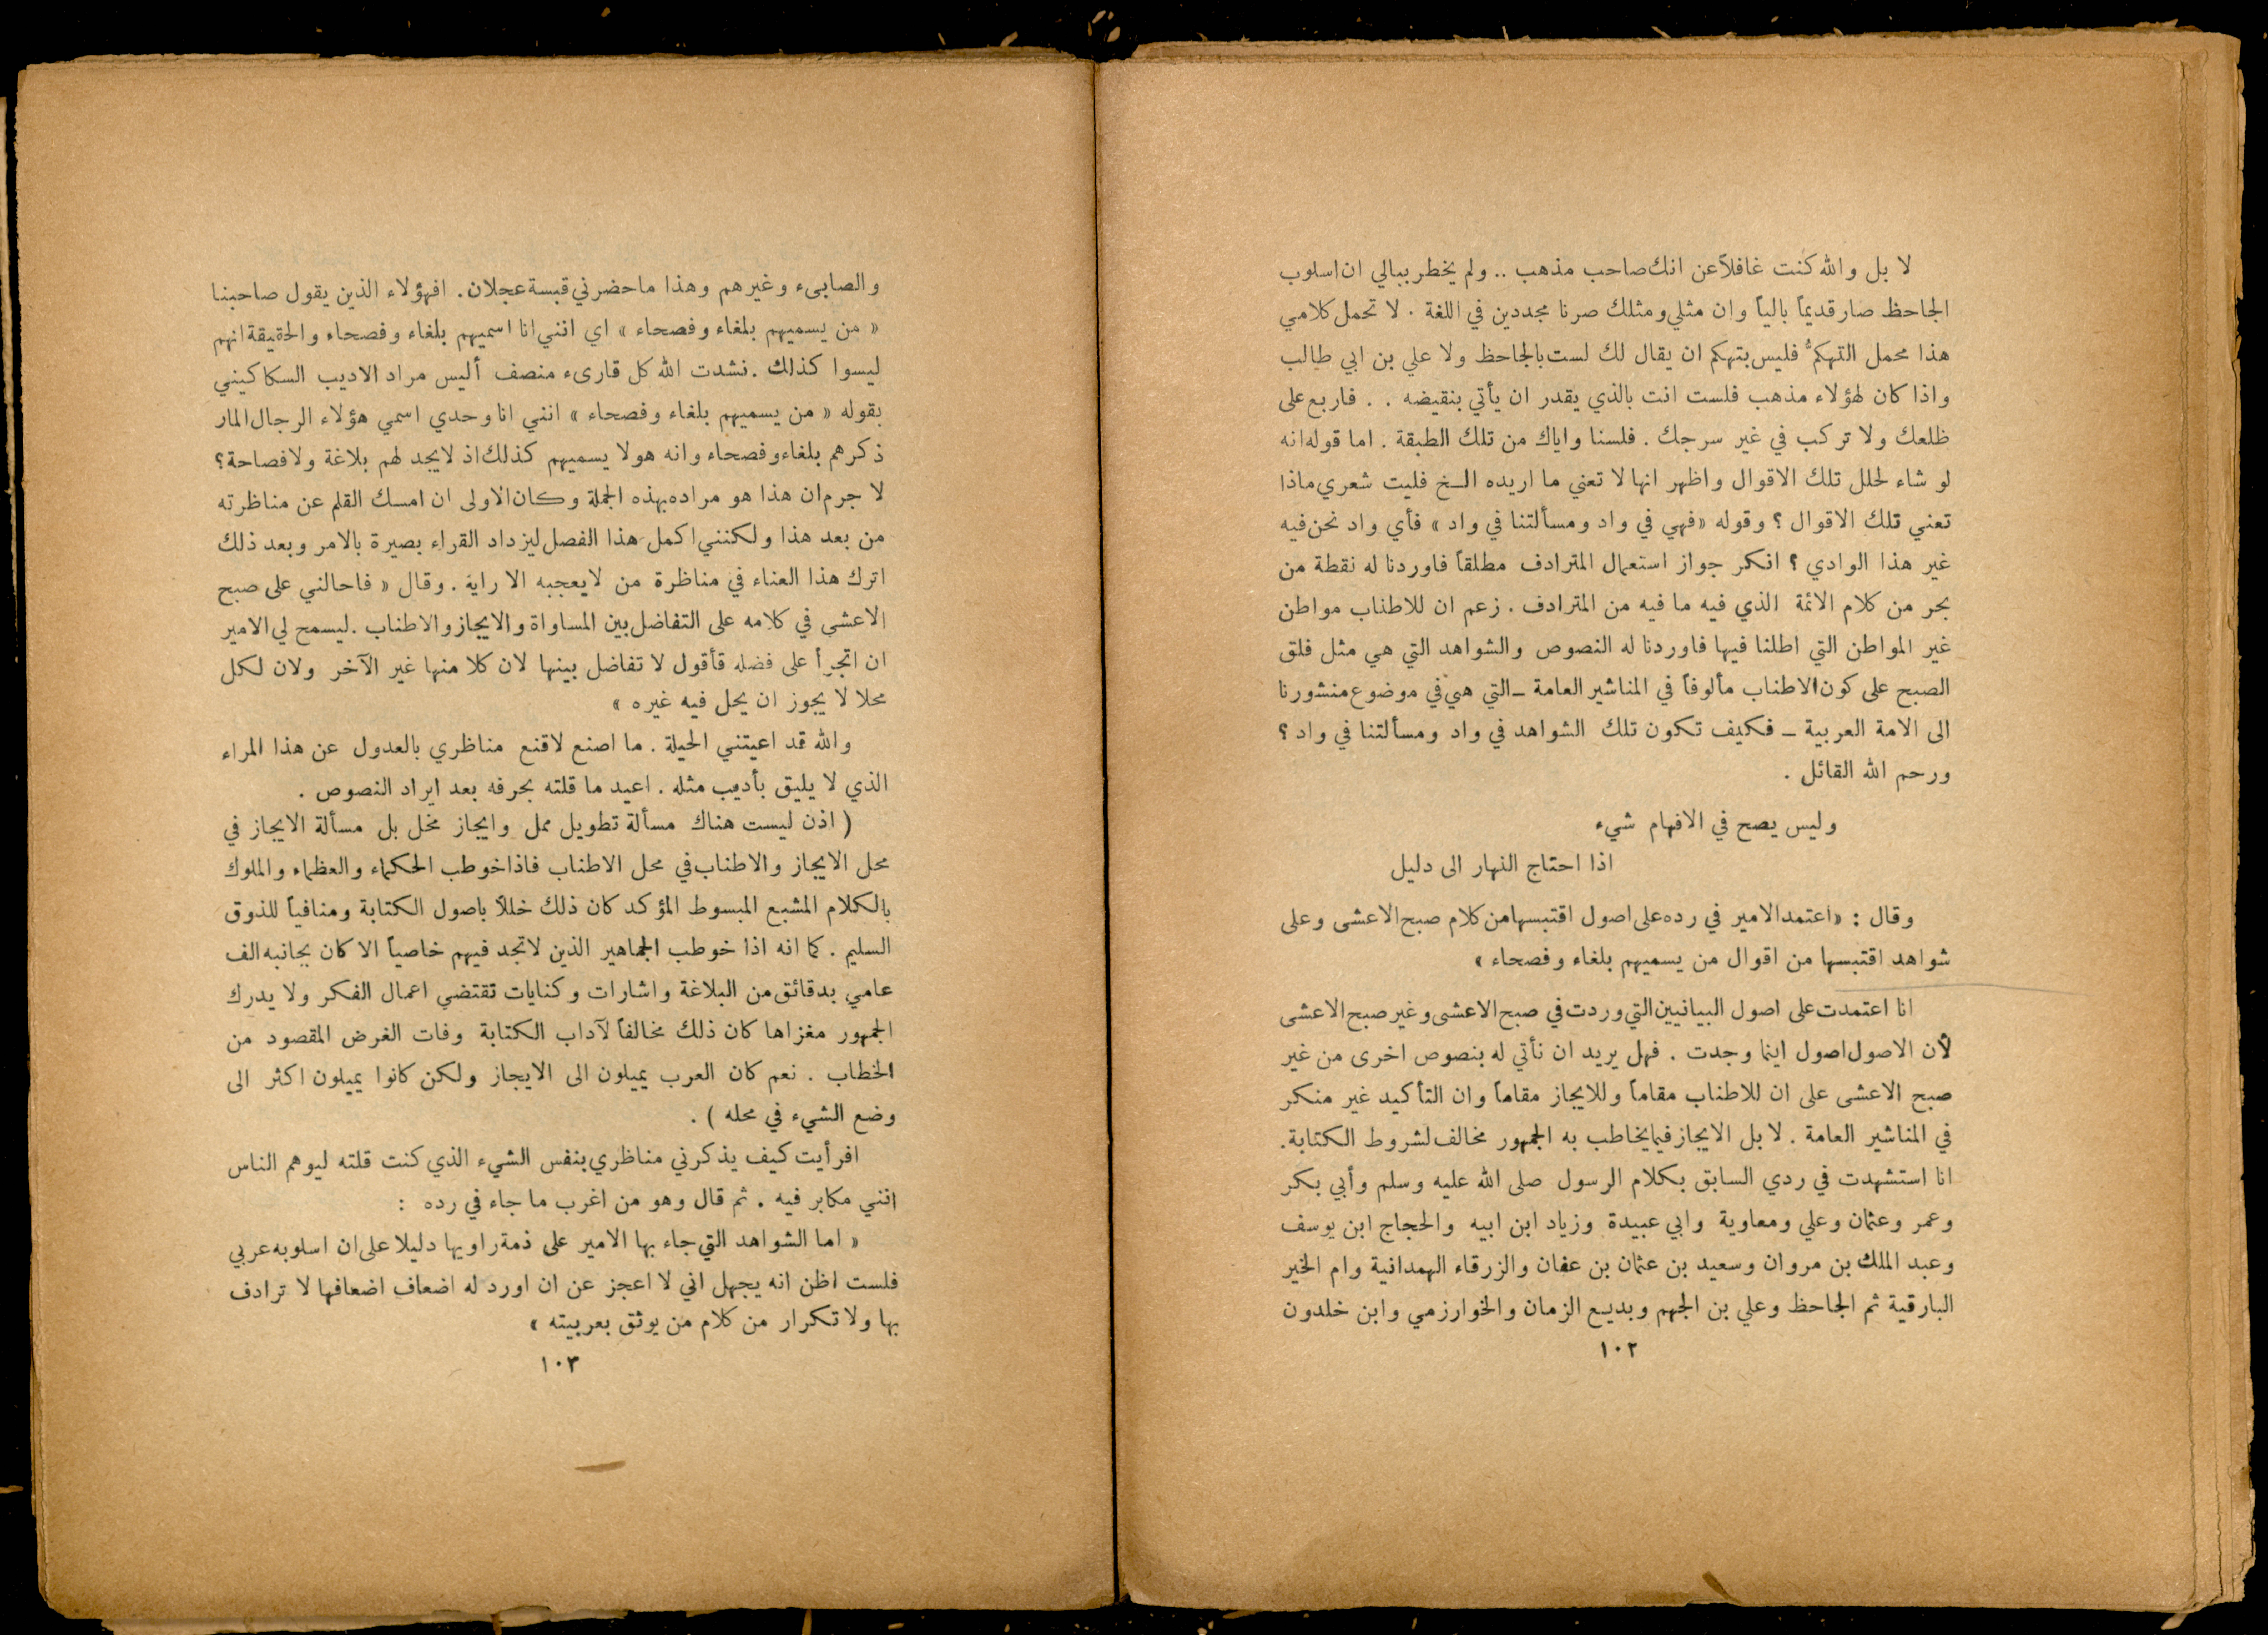 لا بل والله كنت غافلاً عن انك صاحب مذهب .. ولم يخطر ببالي ان اسلوب
الجاحظ صار قديماً بالياً وان مثلي ومثلك صرنا مجددين في اللغة . لا تحمل كلامي
هذا محمل التهكم فليس بتهكم ان يقال لك لست بالجاحظ ولا علي بن ابي طالب
واذا كان لهؤلاء مذهب فلست انت بالذي يقدر ان يأتي بنقيضه . . فاربع على
ظلعك ولا تركب في غير سرجك . فلسنا واياك من تلك الطبقة . اما قوله انه
لو شاء لحلل تلك الاقوال واظهر انها لا تعني ما اريده الـخ فليت شعري ماذا
تعني تلك الاقوال ؟ وقوله « فهي في واد ومسألتنا في واد » فأي واد نحن فيه
غير هذا الوادي ؟ انكر جواز استعمال المترادف مطلقاً فاوردنا له نقطة من
بحر من كلام الائمة الذي فيه ما فيه من المترادف . زعم ان للاطناب مواطن
غير المواطن التي اطلنا فيها فاوردنا له النصوص والشواهد التي هي مثل فلق
الصبح على كون الاطناب مألوفاً في المناشير العامة ــ التي هي في موضوع منشورنا
الى الامة العربية ــ فكيف تكون تلك الشواهد في واد ومسألتنا في واد ؟
ورحم الله القائل .
وليس يصح في الافهام شيء
اذا احتاج النهار الى دليل
وقال : « اعتمد الامير في رده على اصول اقتبسها من كلام صبح الاعشى وعلى
شواهد اقتبسها من اقوال من يسميهم بلغاء وفصحاء »
انا اعتمدت على اصول البيانيين التي وردت في صبح الاعشى وغير صبح الاعشى
لأن الاصول اصول اينما وجدت . فهل يريد ان نأتي له بنصوص اخرى من غير
صبح الاعشى على ان للاطناب مقاماً وللايجاز مقاماً وان التأكيد غير منكر
في المناشير العامة . لا بل الايجاز فيما يخاطب به الجمهور مخالف لشروط الكتابة .
انا استشهدت في ردي السابق بكلام الرسول صلى الله عليه وسلم وأبي بكر
وعمر وعثمان وعلي ومعاوية وابي عبيدة وزياد ابن ابيه والحجاج ابن يوسف
وعبد الملك بن مروان وسعيد بن عثمان بن عفان والزرقاء الهمدانية وام الخير
البارقية ثم الجاحظ وعلي بن الجهم وبديع الزمان والخوارزمي وابن خلدون
١٠٢
والصابىء وغيرهم وهذا ما حضرني قبسة عجلان . افهؤلاء الذين يقول صاحبنا
« من يسميهم بلغاء وفصحاء » اي انني انا اسميهم بلغاء وفصحاء والحقيقة انهم
ليسوا كذلك . نشدت الله كل قارىء منصف أليس مراد الاديب السكاكيني
بقوله « من يسميهم بلغاء وفصحاء » انني انا وحدي اسمي هؤلاء الرجال المار
ذكرهم بلغاء وفصحاء وانه هو لا يسميهم كذلك اذ لا يجد لهم بلاغة ولا فصاحة ؟
لا جرم ان هذا هو مراده بهذه الجملة وكان الاولى ان امسك القلم عن مناظرته
من بعد هذا ولكنني اكمل هذا الفصل ليزداد القراء بصيرة بالامر وبعد ذلك
اترك هذا العناء في مناظرة من لا يعجبه الا رايه . وقال « فاحالني على صبح
الاعشى في كلامه على التفاضل بين المساواة والايجاز والاطناب . ليسمح لي الامير
ان اتجرأ على فضله فأقول لا تفاضل بينها لان كلا منها غير الآخر ولان لكل
محلا لا يجوز ان يحل فيه غيره »
والله قد اعيتني الحيلة . ما اصنع لاقنع مناظري بالعدول عن هذا المراء
الذي لا يليق بأديب مثله . اعيد ما قلته بحرفه بعد ايراد النصوص .
( اذن ليست هناك مسألة تطويل ممل وايجاز مخل بل مسألة الايجاز في
محل الايجاز والاطناب في محل الاطناب فاذا خوطب الحكماء والعظماء والملوك
بالكلام المشبع المبسوط المؤكد كان ذلك خللاً باصول الكتابة ومنافياً للذوق
السليم . كما انه اذا خوطب الجماهير الذين لا تجد فيهم خاصياً الا كان بجانبه الف
عامي بدقائق من البلاغة واشارات وكنايات تقتضي اعمال الفكر ولا يدرك
الجمهور مغزاها كان ذلك مخالفاً لآداب الكتابة وفات الغرض المقصود من
الخطاب . نعم كان العرب يميلون الى الايجاز ولكن كانوا يميلون اكثر الى
وضع الشيء في محله ) .
افرأيت كيف يذكرني مناظري بنفس الشيء الذي كنت قلته ليوهم الناس
انني مكابر فيه . ثم قال وهو من اغرب ما جاء في رده :
« اما الشواهد التي جاء بها الامير على ذمة راويها دليلا على ان اسلوبه عربي
فلست اظن انه يجهل اني لا اعجز عن ان اورد له اضعاف اضعافها لا ترادف
بها ولا تكرار من كلام من يوثق بعربيته »
١٠٣